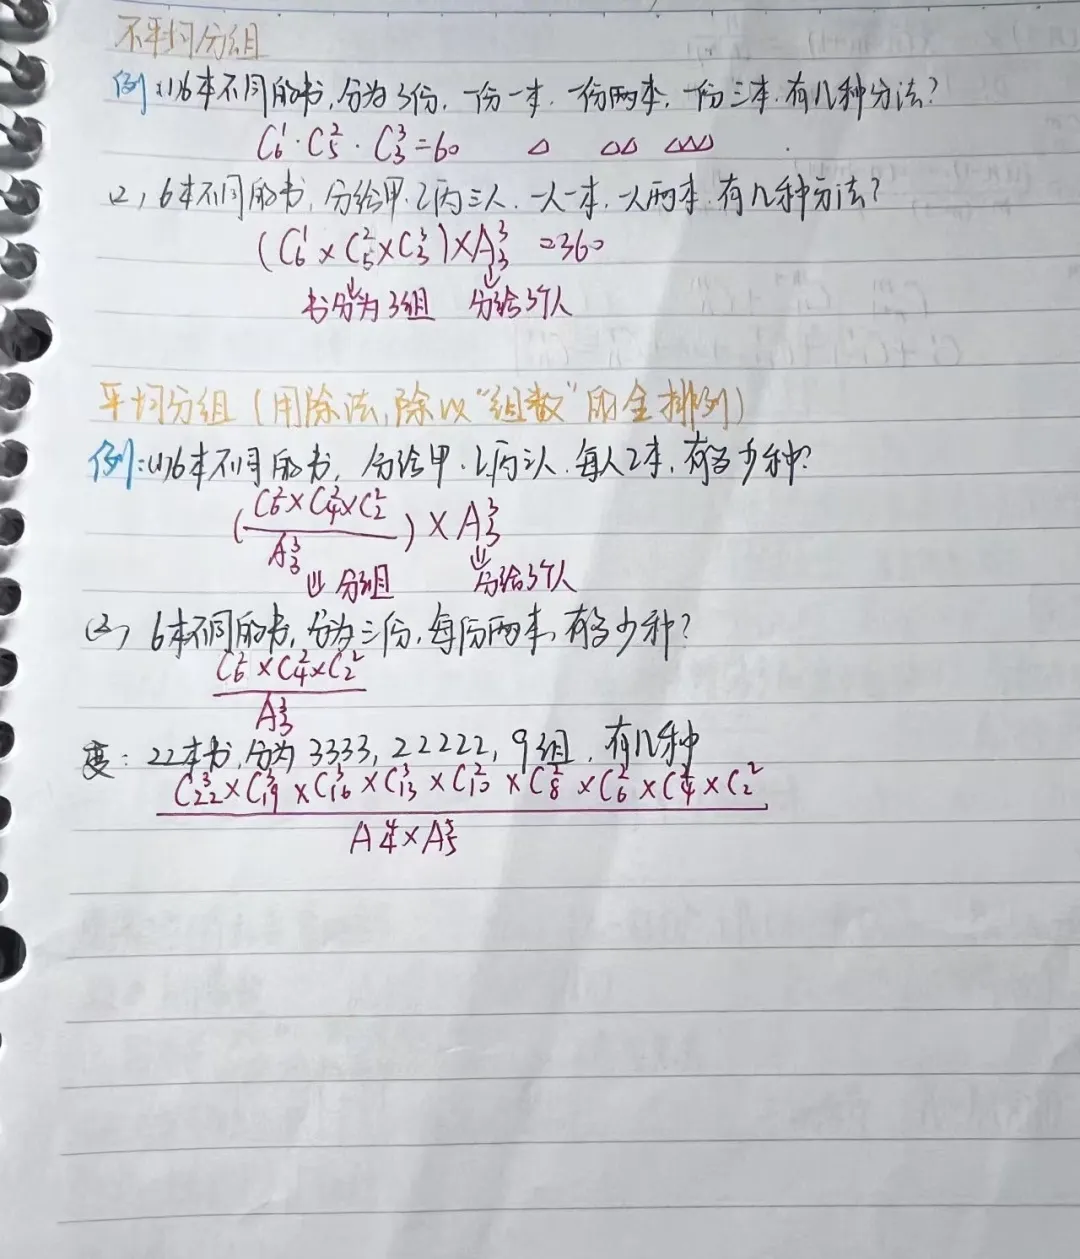 不平均分组
例:(1)6本不同的书,分为3份,一份一本,一份两本,一份三本.有几种分法?
C₆¹·C₅²·C₃³=60 △ △△ △△△
(2),6本不同的书,分给甲.乙丙三人.一人一本,一人两本.有几种分法?
(C₆¹×C₅²×C₃³)×A₃³ =360
书分为3组 分给3个人
平均分组(用除法,除以"组数"的全排列)
例:(1)6本不同的书,分给甲.乙丙三人.每人2本,有多少种?
(C₆²×C₄²×C₂²/A₃³)×A₃³
⇓分组 分给3个人
(2),6本不同的书,分为三份,每份两本,有多少种?
C₆²×C₄²×C₂²/A₃³
变:22本书,分为3333,22222,9组,有几种
C₂₂³×C₁₉³×C₁₆³×C₁₃³×C₁₀²×C₈²×C₆²×C₄²×C₂²
A₄⁴×A₅⁵